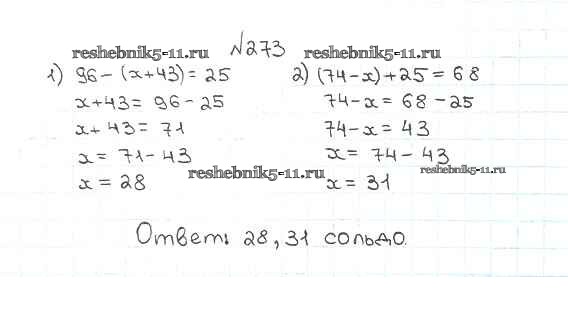 №273
reshebnik5-11.ru reshebnik5-11.ru
1) 96-(x+43)=25
x+43=96-25
x+43=71
x=71-43
x=28
reshebnik5-11.ru
2) (74-x)+25=68
74-x=68-25
74-x=43
x=74-43
reshebnik5-11.ru
x=31
Ответ: 28, 31 сольдо.